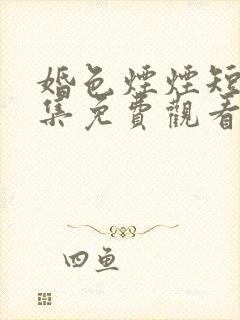 婚色煙煙短
集免費觀看
四魚